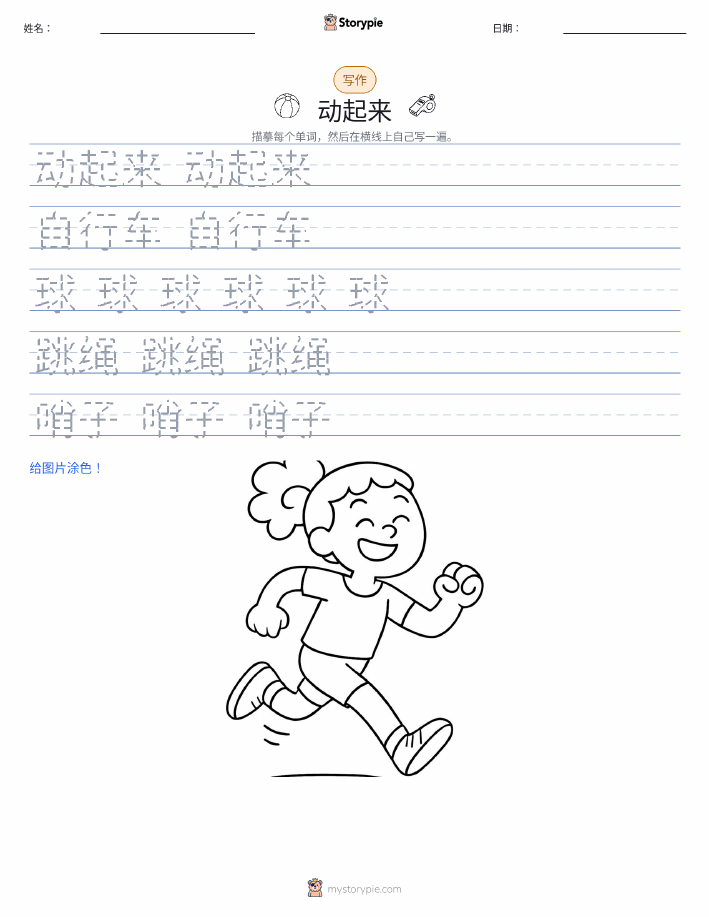 姓名： Storypie 日期：
写作
动起来
描摹每个单词，然后在横线上自己写一遍。
动起来 动起来
自行车 自行车
球 球 球 球 球 球
跳绳 跳绳 跳绳
哨子 哨子 哨子
给图片涂色！
mystorypie.com